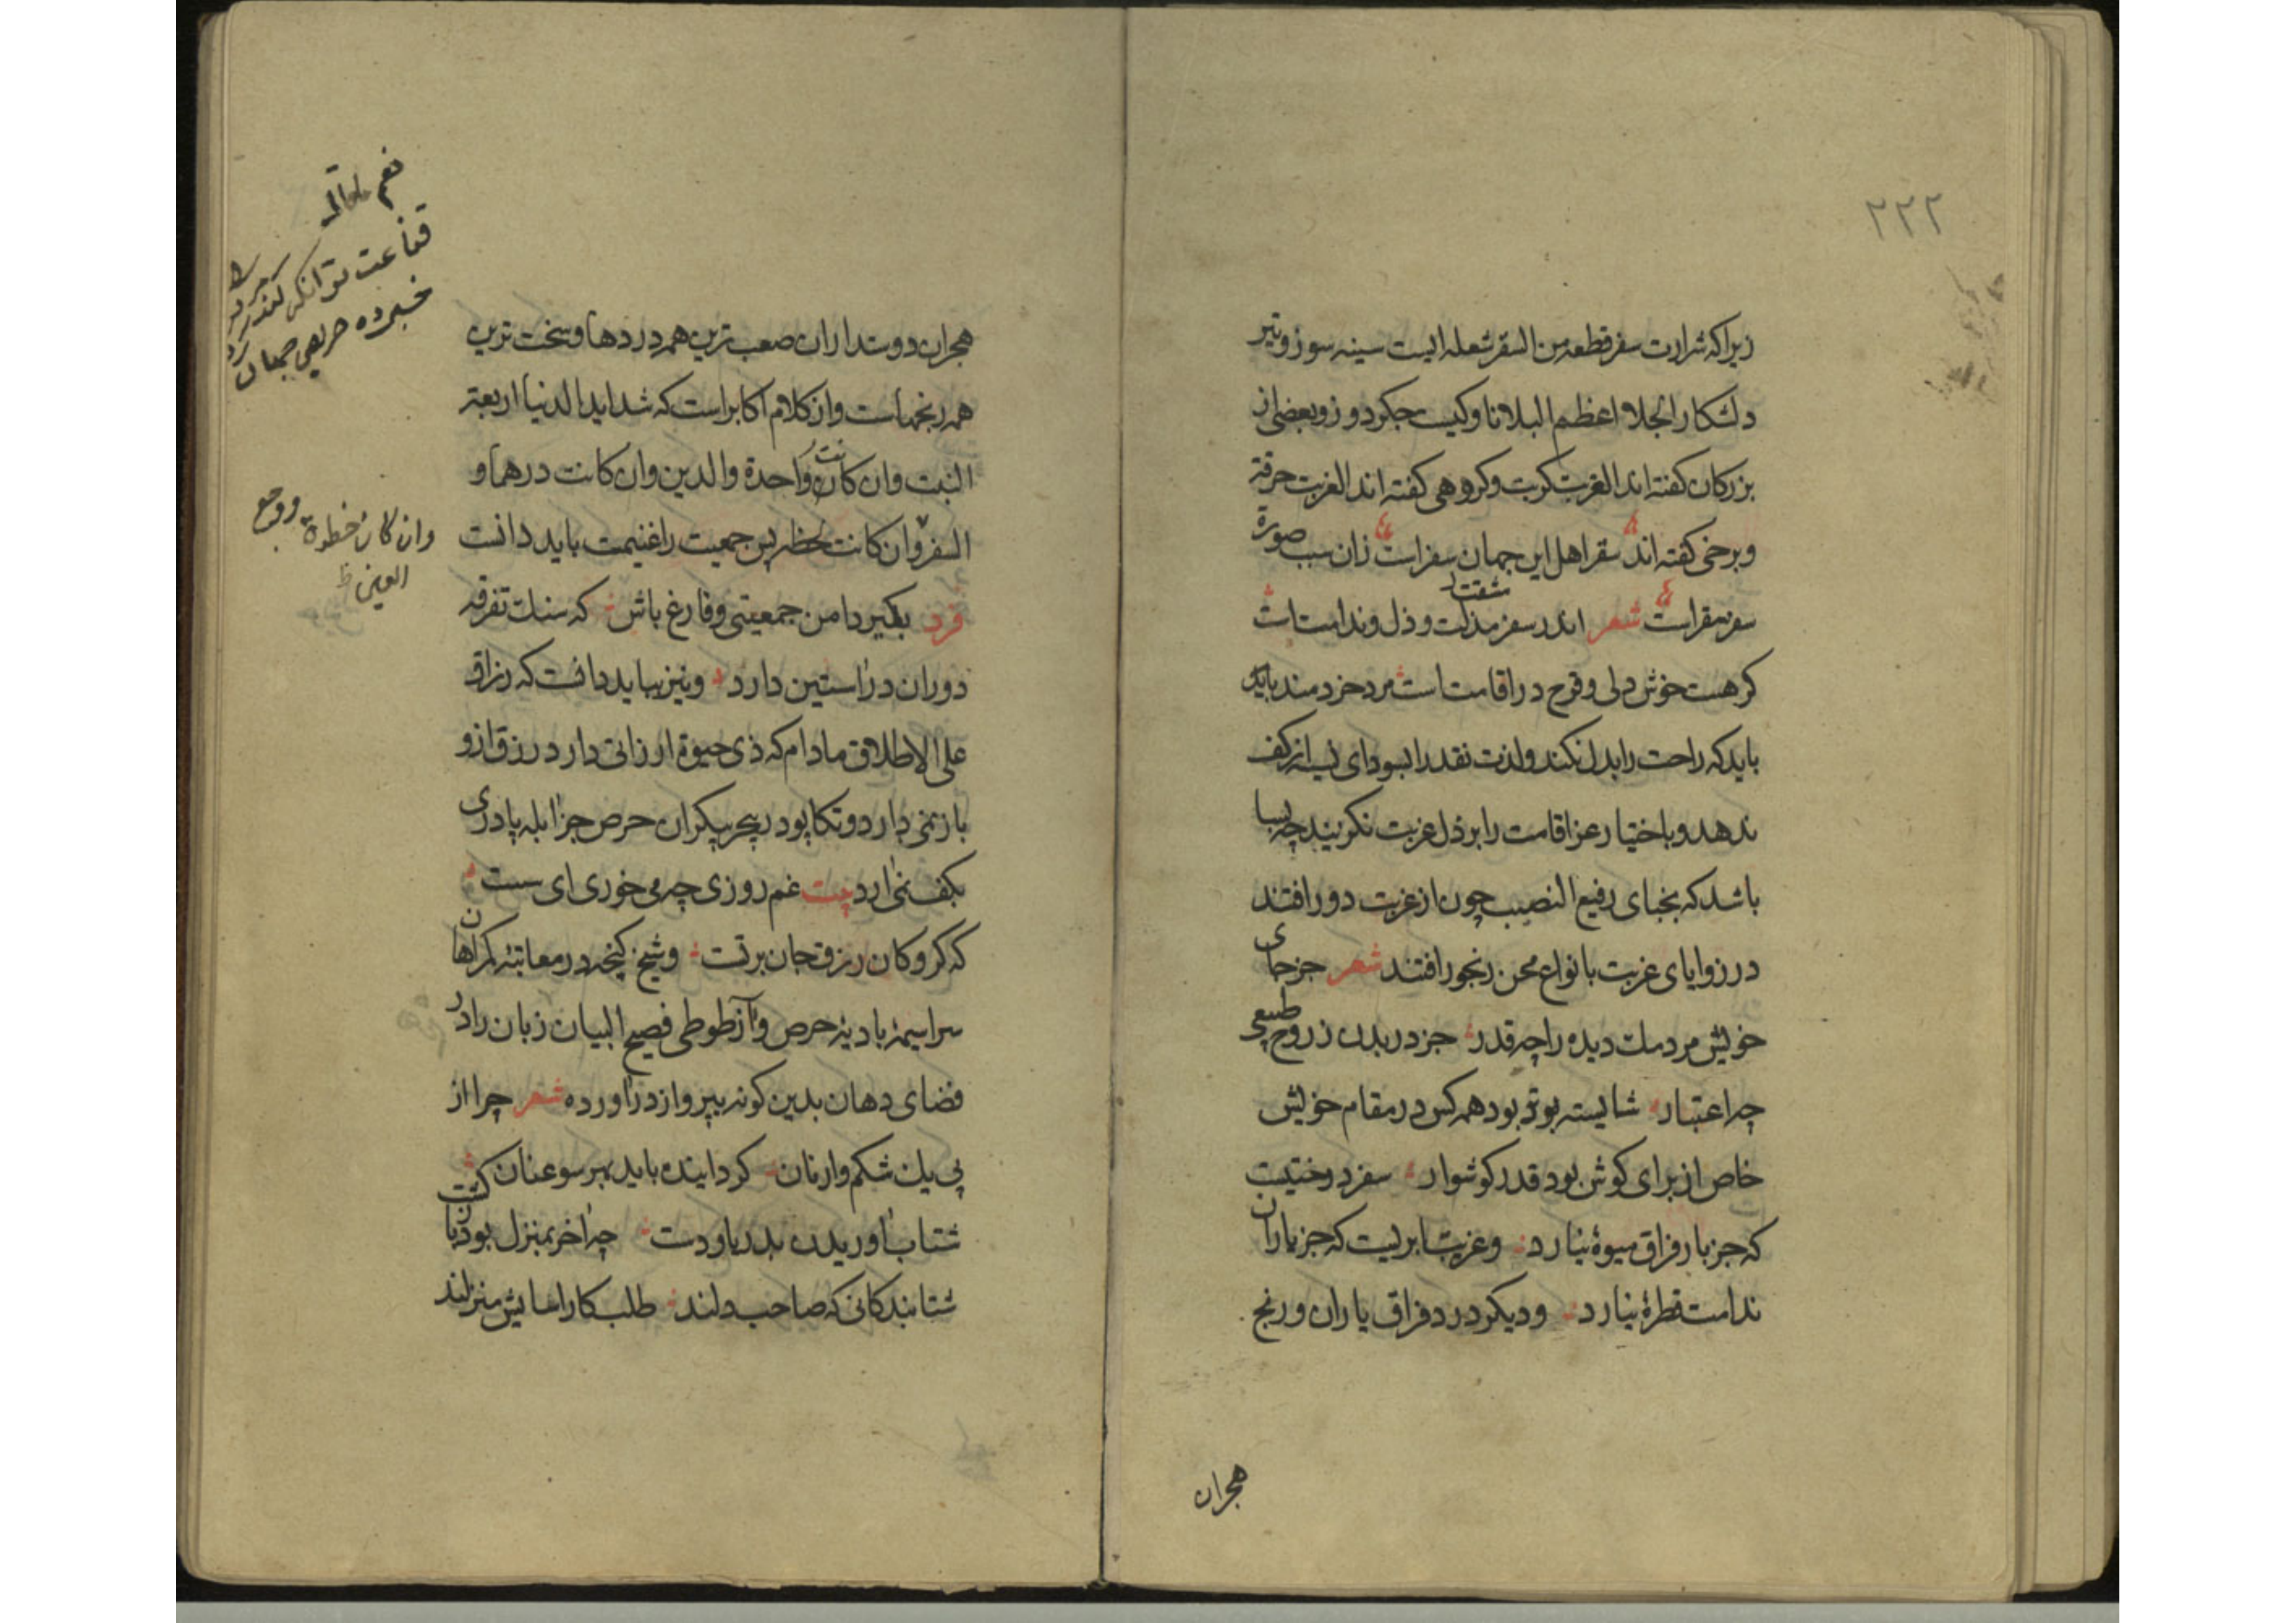 ٢٢٢
زیرا که شرارت سفر قطعه من السقر شعله ایست سینه سوز و تیر
دلشکار الجلا اعظم البلا ناوکیست جکر دوز و بعضی از
بزرکان کفته اند الغربت کربت و کروهی کفته اند الغربت حرقة
و برخی کفته اند سقر اهل این جهان سفر است زان سبب صورة
سفر سقر است شعر اندر سفر مذلت و ذل و ندامت است
مشقت
کر هست خوش دلی و فرح در اقامت است مرد خردمند باید
باید که راحت را بدل نکند و لذت نقد را بسودای نسیه از کف
ندهد و باختیار عز اقامت را بر ذل غربت نکزیند چه بسا
باشد که نجبای رفیع النصیب چون از غربت دور افتند
در زوایای غربت بانواع محن رنجور افتند شعر جز جای
خویش مردمک دیده را چه قدر جز در بدن ز روح طبیعی
چه اعتبار شایسته بود همه کس در مقام خویش
خاص از برای کوش بود قدر کوشوار سفر درختیست
که جز بار فراق میوهٔ نیارد و غربت ابریست که جز باران
ندامت قطرهٔ نبارد و دیکر درد فراق یاران و رنج
هجران
هجران دوستداران صعب ترین همه دردها و سخت ترین
همه رنجهاست و از کلام اکابر است که شداید الدنیا اربعة
البنت وان کانت واحدة والدین وان کانت درهما و
السفر وان کانت لحظه پس جمعیت را غنیمت باید دانست
فرد بکیر دامن جمعیتی و فارغ باش که سنک تفرقه
دوران در استین دارد و نیز بباید دانست که رزاق
علی الاطلاق مادام که ذی حیوة ارزانی دارد رزق ازو
باز نمی دارد و تکاپوی حرص جز ابله پا دری
بکف نمی ارد بیت غم روزی چه می خوری ای سست
که کروکان رزق جان بر تست و شیخ کنجه در معاتبه کمراهان
سراسیمهٔ بادیهٔ حرص و آز طوطی فصیح البیان زبان را در
فضای دهان بدین کونه بپرواز در اورده شعر چرا از
پی یک شکم وار نان کرداینده باید بهر سو عنان
شتاب اوریدن بدریا و دشت چه اخر بمنزل بود باز کشت
شتابندکانی که صاحب دلند طلبکار اسایش منزلند
قناعت توانکر کند مرد را
خبر ده حریص جهان کرد را
وان کان خطوة و وجع
العین ظ